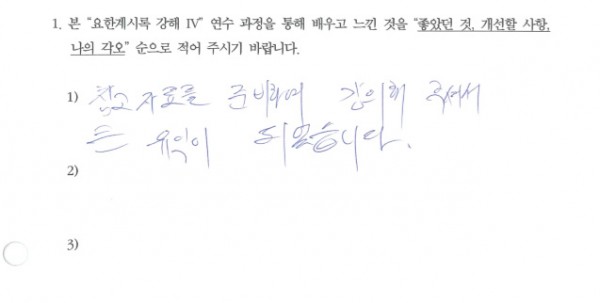 1. 본 "요한계시록 강해 IV" 연수 과정을 통해 배우고 느낀 것을 "좋았던 것, 개선할 사항,
나의 각오" 순으로 적어 주시기 바랍니다.
1) 참고 자료를 준비하며 강의해 주셔서
큰 유익이 되었습니다.
2)
3)